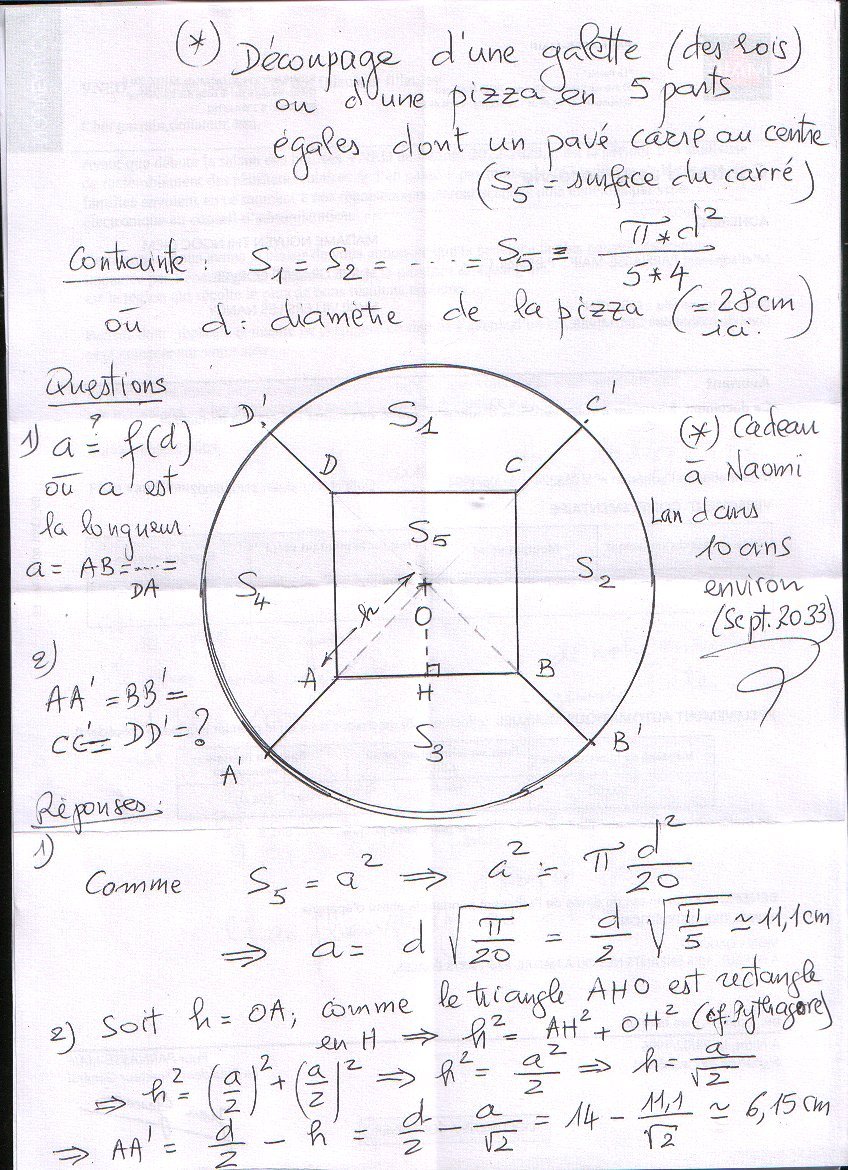 (*) Découpage d'une galette (des rois)
ou d'une pizza en 5 parts
égales dont un pavé carré au centre
(S5 = surface du carré)
Contrainte : S1 = S2 = ..... = S5 = π*d²/5*4
où d : diamètre de la pizza (= 28cm ici.)
Questions
1) a =? f(d)
où a est
la longueur
a = AB = ..... =
DA
2)
AA' = BB' =
CC' = DD' = ?
D'
S1
C'
D
C
S5
S4
S2
h
O
A
H
B
S3
A'
B'
(*) Cadeau
à Naomi
Lan dans
10 ans
environ
(Sept. 2033)
Réponses :
1)
Comme S5 = a² ⇒ a² = π d²/20
⇒ a = d √(π/20) = d/2 √(π/5) ≃ 11,1cm
2) Soit h = OA ; comme le triangle AHO est rectangle
en H ⇒ h² = AH² + OH² (cf. Pythagore)
⇒ h² = (a/2)² + (a/2)² ⇒ h² = a²/2 ⇒ h = a/√2
⇒ AA' = d/2 - h = d/2 - a/√2 = 14 - 11,1/√2 ≃ 6,15 cm